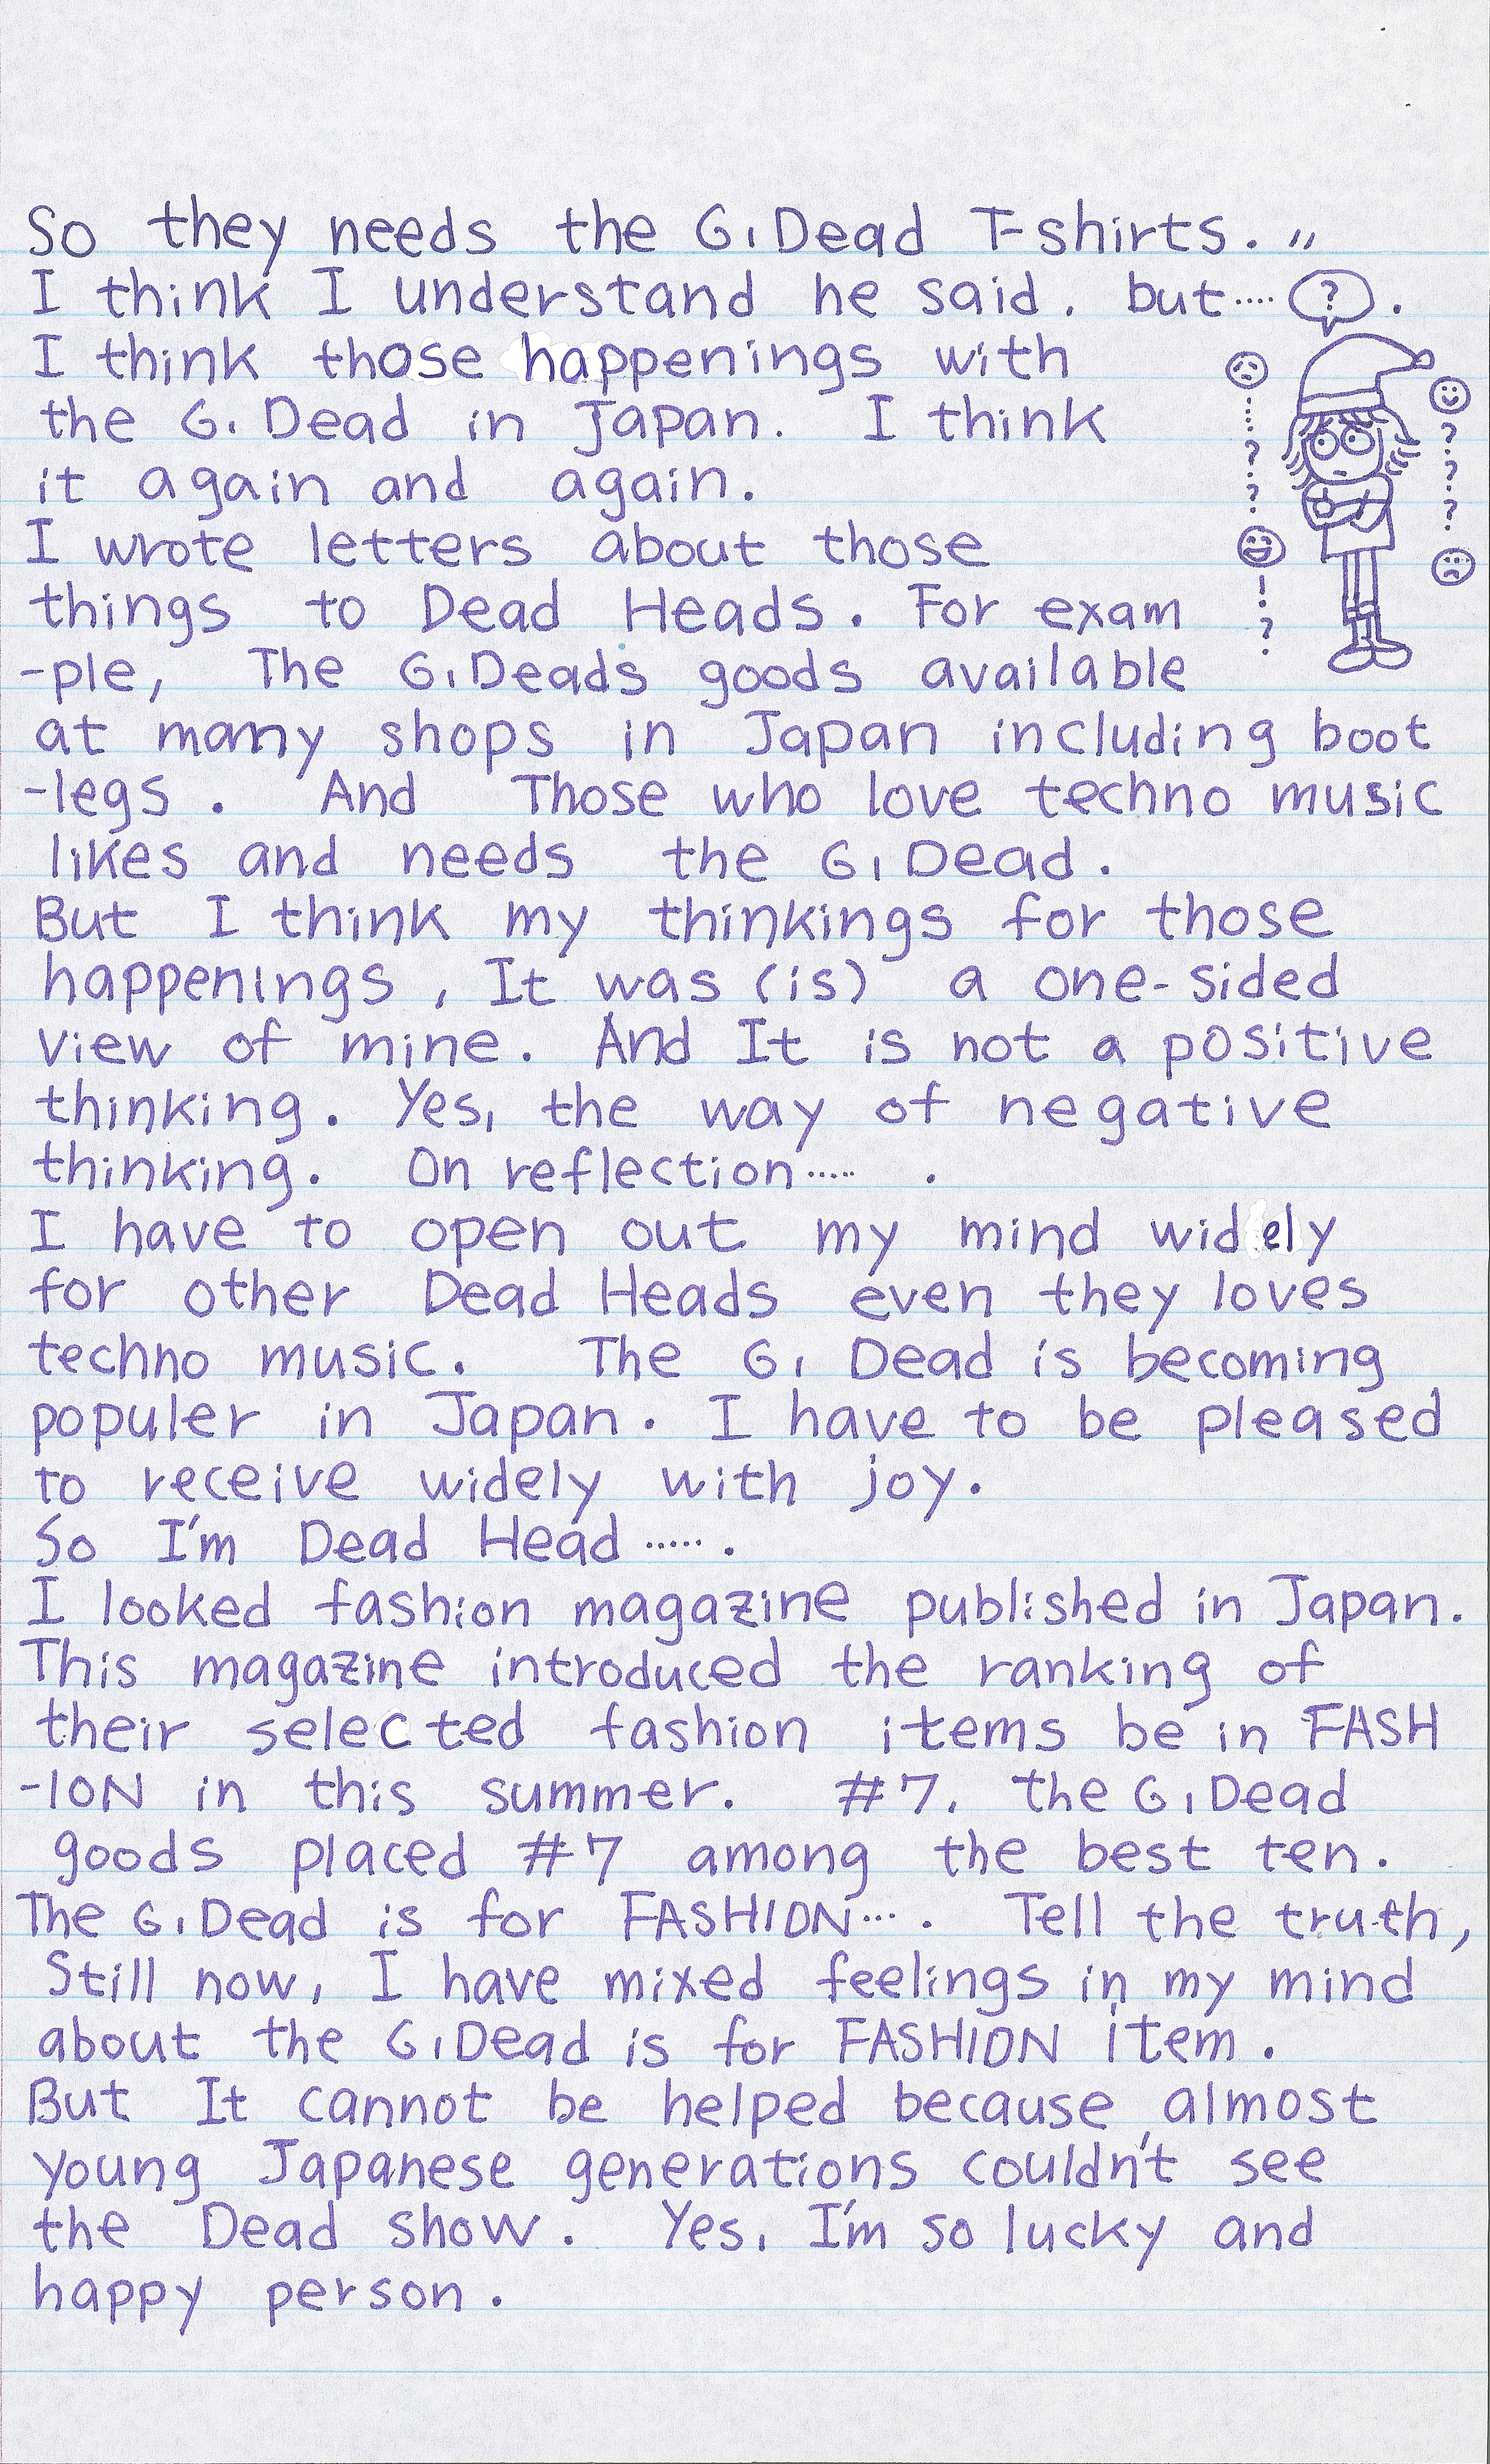 So they needs the G. Dead T-shirts. "
I think I understand he said. but····· ? .
I think those happenings with
the G. Dead in Japan. I think
it again and again.
I wrote letters about those
things to Dead Heads. For exam
-ple, The G. Deads goods available
at many shops in Japan including boot
-legs. And Those who love techno music
likes and needs the G. Dead.
But I think my thinkings for those
happenings, It was (is) a one-sided
view of mine. And It is not a positive
thinking. Yes, the way of negative
thinking. On reflection····· .
I have to open out my mind widely
for other Dead Heads even they loves
techno music. The G. Dead is becoming
populer in Japan. I have to be pleased
to receive widely with joy.
So I'm Dead Head ····· .
I looked fashion magazine published in Japan.
This magazine introduced the ranking of
their selected fashion items be in FASH
-ION in this summer. #7. the G. Dead
goods placed #7 among the best ten.
The G. Dead is for FASHION··· . Tell the truth,
Still now, I have mixed feelings in my mind
about the G. Dead is for FASHION item.
But It cannot be helped because almost
young Japanese generations couldn't see
the Dead show. Yes, I'm so lucky and
happy person.